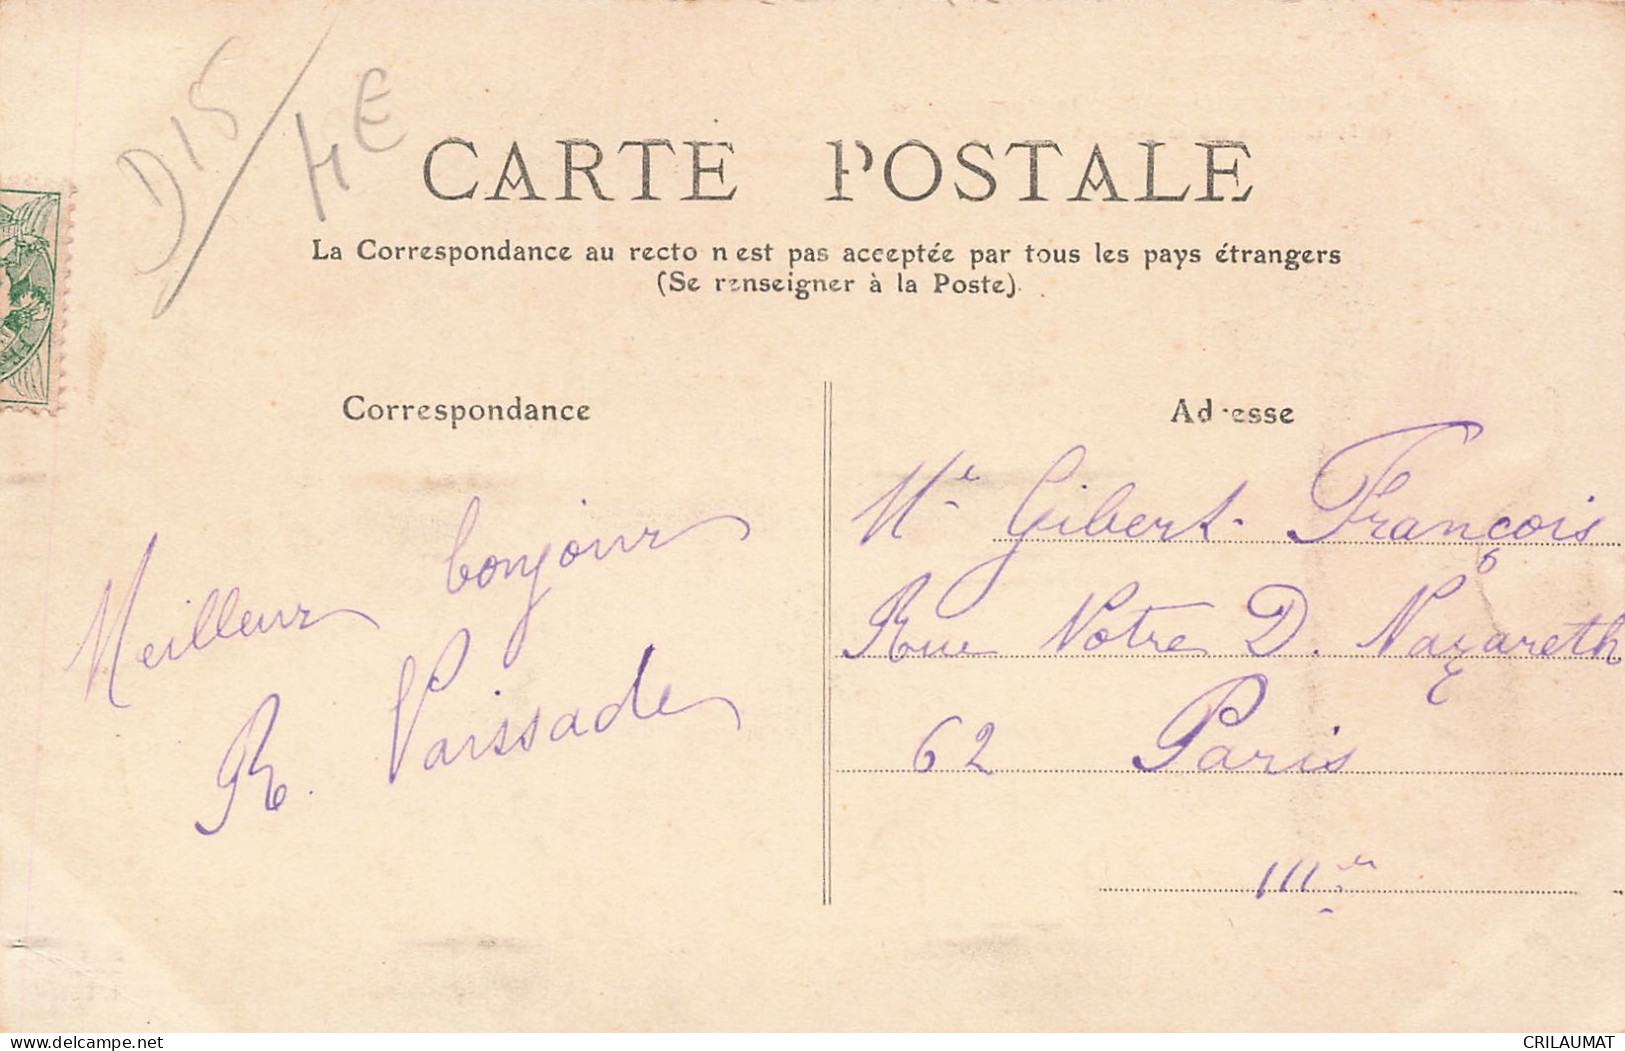 D15/
4E
CARTE POSTALE
La Correspondance au recto n est pas acceptée par tous les pays étrangers
(Se renseigner à la Poste).
Correspondance
Meilleur bonjour
R. Vaissade
Adresse
Me Gibert François
Rue Notre D. Nazareth
62 Paris
III
www.delcampe.net
CRILAUMAT